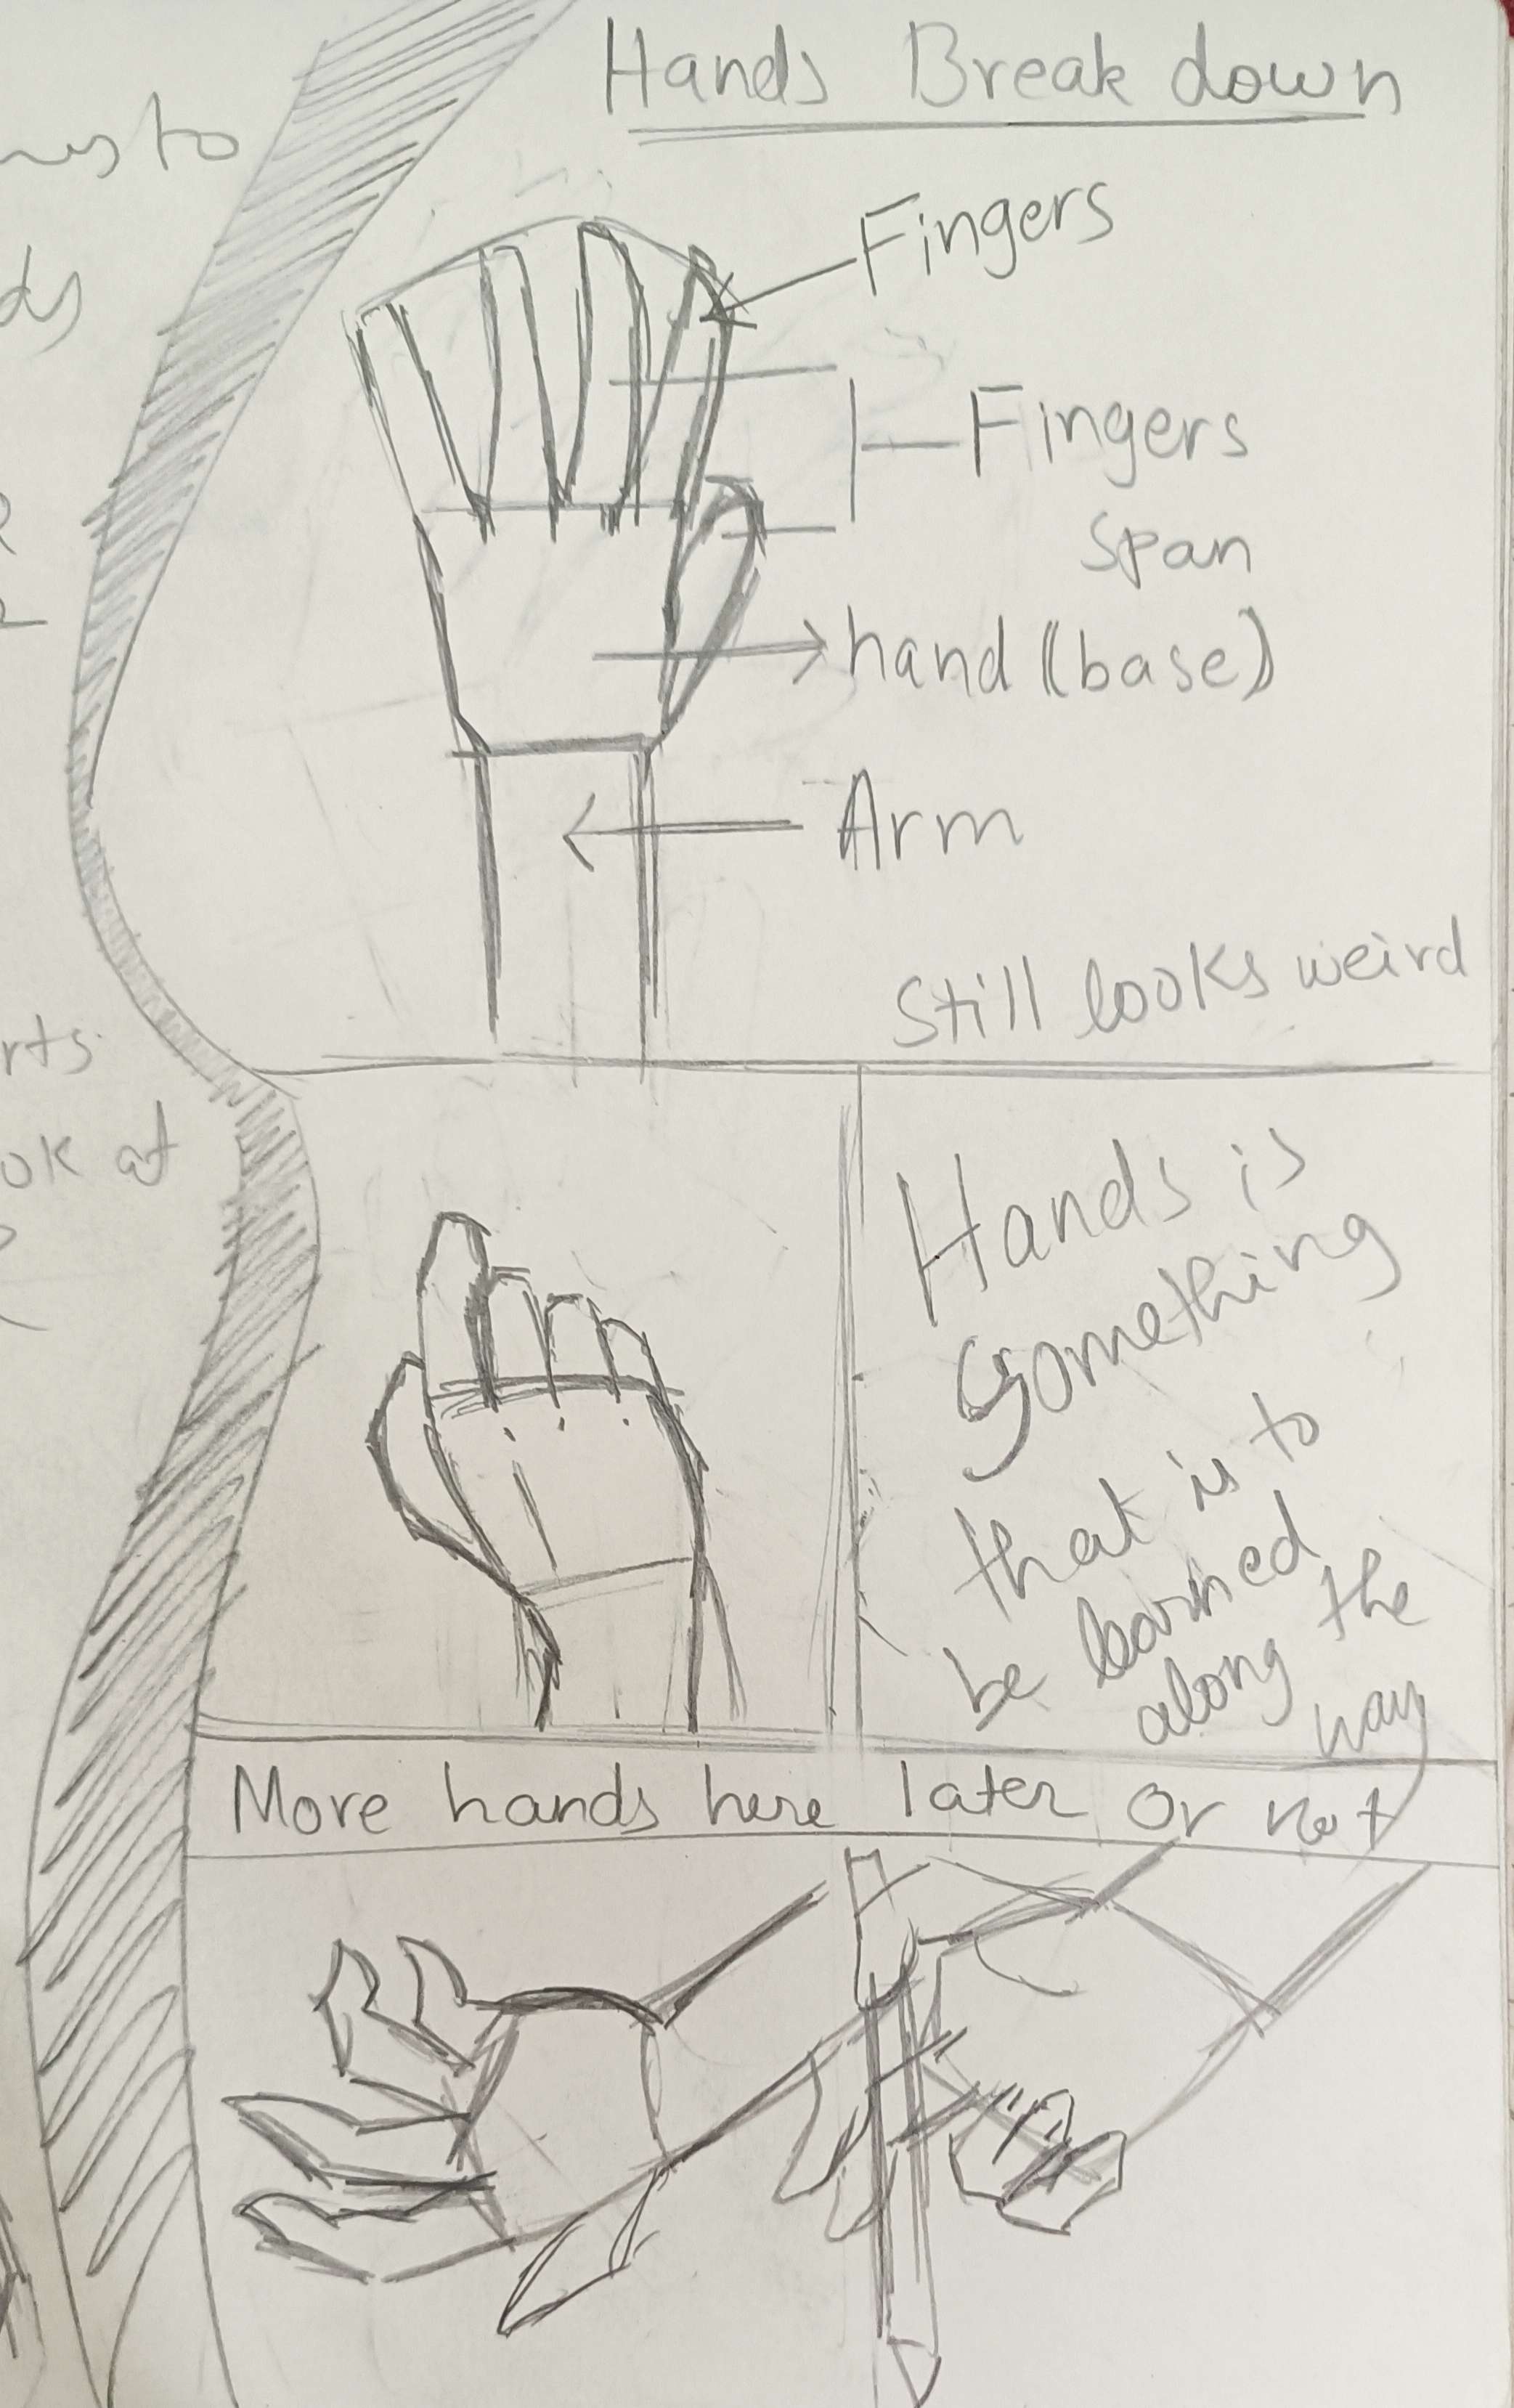 Hands Break down
Fingers
Fingers
span
hand (base)
Arm
Still looks weird
Hands is
something
that is to
be learned
along the
way
More hands here later or not
to
ds
rts
ok at